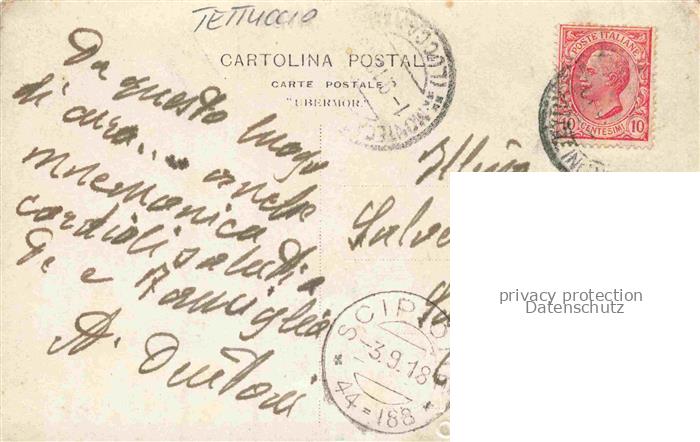 TETTUCCIO
CARTOLINA POSTALE
CARTE POSTALE
"UBERMOR
POSTE ITALIANE
10 CENTESIMI 10
(LUCCA) MONTEC
Da questo luogo
di cura... anche
mnemonica
cordiali saluti a
Te e Famiglia
A.
Salve
SCIPIO
-3.9.18
44=188
privacy protection
Datenschutz